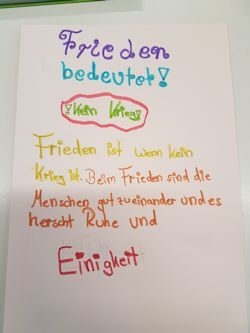 Frieden
bedeutet!
!Kein Krieg!
Frieden ist wenn kein
Krieg ist. Beim Frieden sind die
Menschen gut zueinander und es
herscht Ruhe und
Einigkeit